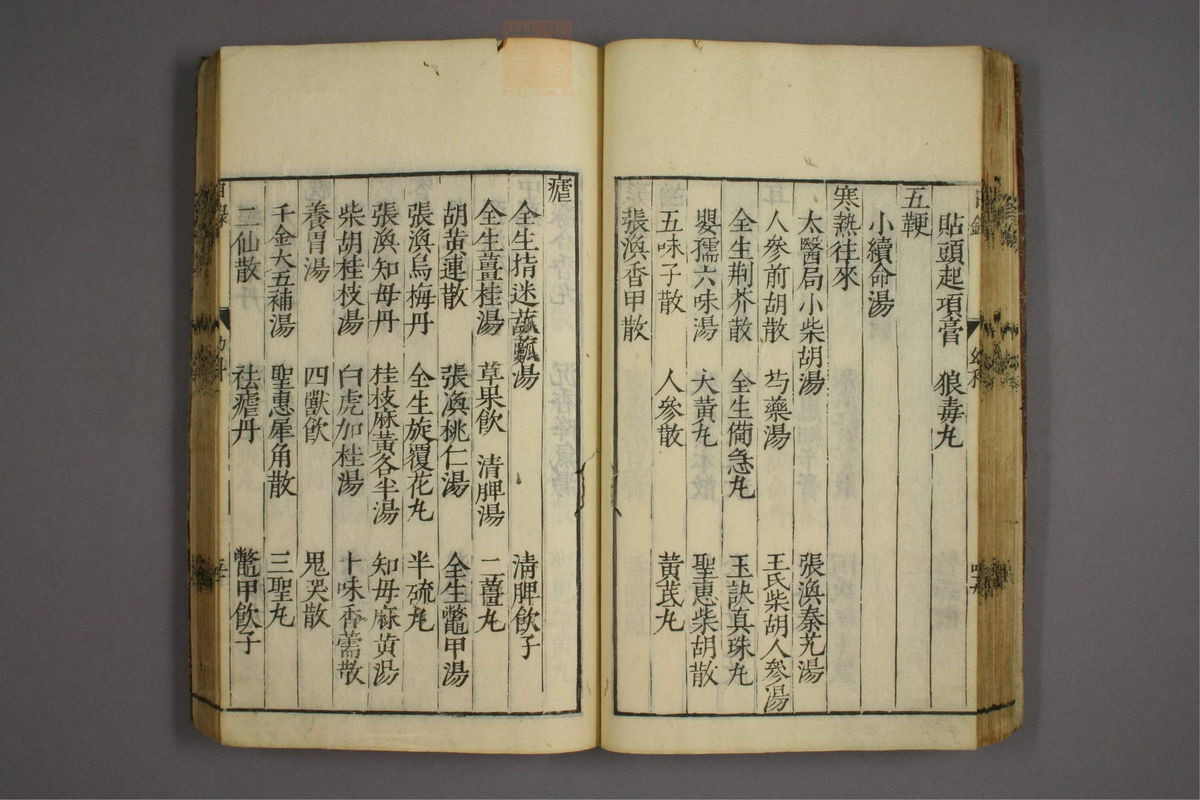 貼頭起項膏 狼毒丸
五鞕
小續命湯
寒熱往來
太醫局小柴胡湯 張渙秦艽湯
人參前胡散 芍藥湯 王氏柴胡人參湯
全生荆芥散 全生備急丸 玉訣真珠丸
嬰孺六味湯 大黃丸 聖惠柴胡散
五味子散 人參散 黃芪丸
張渙香甲散
瘧
全生指迷瓜蔞湯 清脾飲子
全生薑桂湯 草果飲 清脾湯 二薑丸
胡黃連散 張渙桃仁湯 全生鱉甲湯
張渙烏梅丹 全生旋覆花丸 半硫丸
張渙知母丹 桂枝麻黃各半湯 知母麻黃湯
柴胡桂枝湯 白虎加桂湯 十味香薷散
養胃湯 四獸飲 鬼哭散
千金大五補湯 聖惠犀角散 三聖丸
二仙散 祛瘧丹 鱉甲飲子